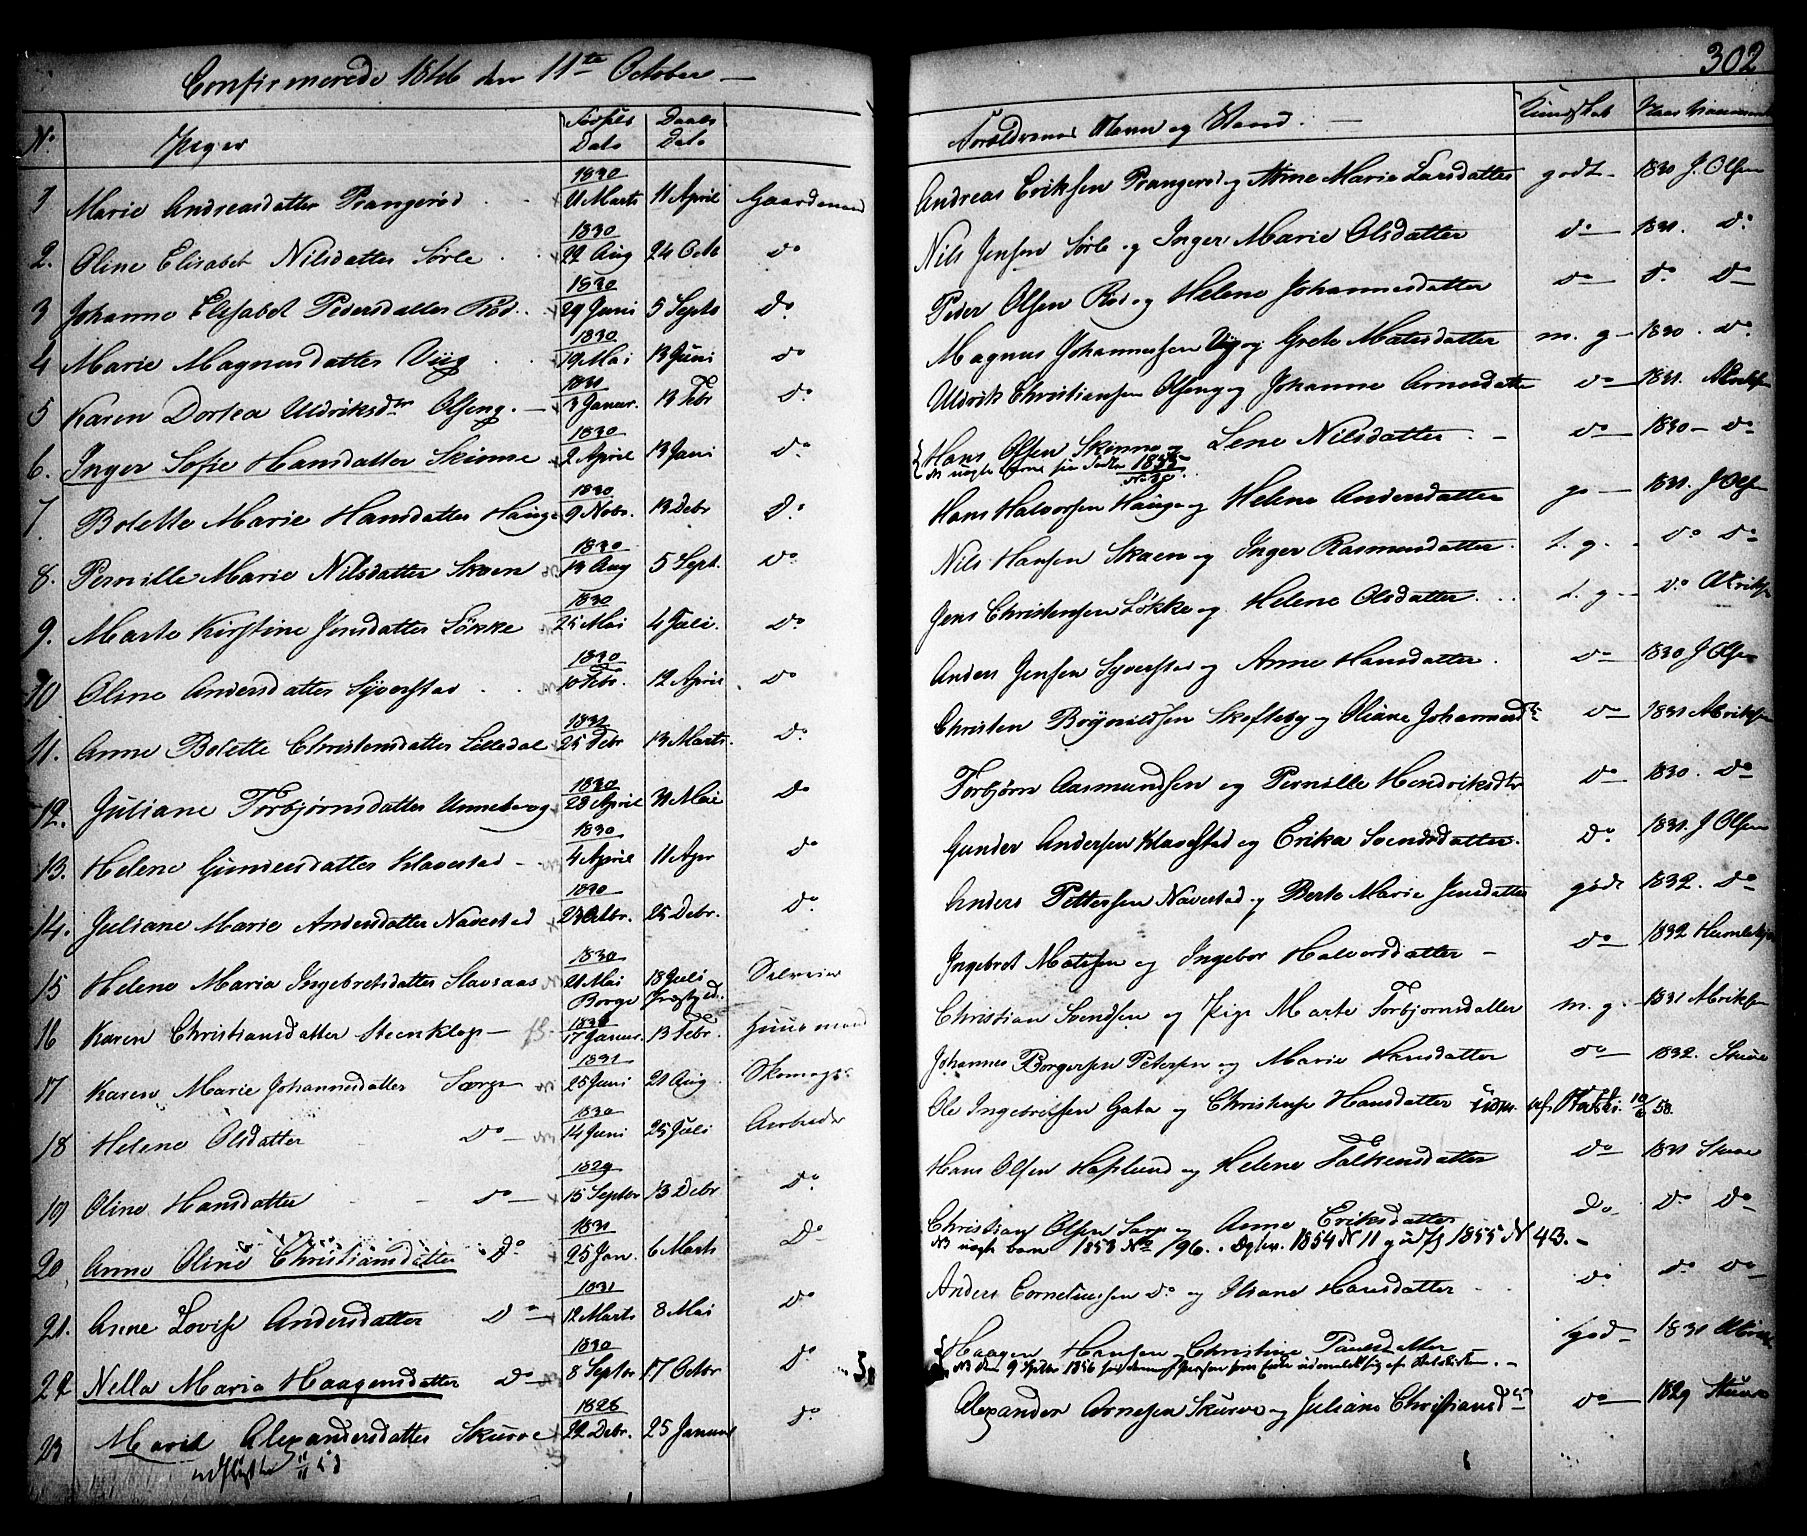 302
Confirmerede 1846 den 11te October
No. Piger Fødsels Dato Daabs Dato Forældrenes Navn og Stand. Kundskab
1 Marie Andreasdatter Prangerød 1830 21 Marts 11 April Gaardmand Andreas Eriksen Prangerød og Anne Marie Larsdatter godt 1830 J. Olsen
2. Oline Elisabet Nilsdatter Sørle 1830 22 Aug 24 Octb do Nils Jensen Sørle og Inger Marie Olsdatter do 1831. do
3 Johanne Elisabet Pedersdatter Rød 1830 29 Juni 5 Septb do Peder Olsen Rød og Helene Johannesdatter do do do
4 Marie Magnusdatter Viig 1830 19 Mai 13 Juni do Magnus Johannessen Viig og Grete Matisdatter m. g 1830. do
5 Karen Dortea Uldriksdtr Olseng. 1831 3 Januar. 13 Febr do Uldrik Christiansen Olseng og Johanne Arnesdatter do 1831.
6. Inger Sofie Hansdatter Skinne 1830 2 April 13 Juni do Hans Olsen Skinne og Lene Nilsdatter do 1830 do
1855
7. Bolette Marie Hansdatter Hauge 1830 9 Novb. 13 Debr do Hans Halvorsen Hauge og Helene Andersdatter g 1831. J Olsen
8. Pernille Marie Nilsdatter Skaen 1830 13 Aug 5 Sept. do Nils Hansen Skaen og Inger Rasmusdatter t. g. do do
9. Marte Kirstine Jensdatter Løkke 1830 25 Mai 4 Juli. do Jens Christensen Løkke og Helene Olsdatter t. g do A Eriksen
10 Oline Andersdatter Syverstad 1830 10 Feb. 12 April do Anders Jensen Syverstad og Anne Hansdatter do 1830 J Olsen
11. Anne Bolette Christensdatter Lilledal 1831 25 Febr 13 Marts. do Christen Brynildsen Skofteby og Oliane Johannesdtr do 1831 A Eriksen
12. Juliane Torbjørnsdatter Unneberg 1830 28 April 31 Mai do Torbjørn Aasmundsen og Pernille Hendriksdtr do 1830. do
13. Helene Gundersdatter Klavestad 1830 4 April 11 Apr do Gunder Andersen Klavestad og Erika Svendsdatter. do 1831. J Olsen
14. Juliane Marie Andersdatter Navestad 1830 23 Octbr. 25 Debr. do Anders Pettersen Navestad og Berte Marie Jensdatter godt 1832. do
15 Helene Maria Ingebretsdatter Slavsaas 1830 21 Mai Borge 18 Juli Ingebret Matisen og Ingebor Halvorsdatter do 1832
16 Karen Christiansdatter Steenklep 1830 17 Januar. 13 Febr. Huusmand Christian Svendsen og Pige Marte Torbjørnsdatter m. g. 1831 A Eriksen
17 Karen Marie Johannesdatter Sarp 1831 25 Juni 21 Aug Johannes Borgersen Petersen og Marie Hansdatter do 1832.
18 Helene Olsdatter do 1830 14 Juni 25 Juli Arbeider Ole Ingebretsen Gata og Christense Hansdatter
19 Oline Hansdatter do 1829 15 Septbr 13 Debr do Hans Olsen Haslund og Helene Falkensdatter do 1831
20. Anne Oline Christiansdatter do 1831 25 Jan. 6 Marts do Christian Olsen Sarp og Anne Eriksdatter do do do
NB uægte barn 1853 No 196. 1854 N 11 1855 N 43.
21. Anne Lovise Andersdatter do 1831 12 Marts 8 Mai do Anders Corneliussen do og Oliane Hansdatter do do do
22 Nella Maria Haagensdatter do 1830 8 Septbr 17 Octbr do Haagen Hansen og Christine Paulsdatter god 1831
NB den 9 Septbr 1856
23 Marie Alexandersdatter Skurve 1828 22 Debr. 25 Januar do Alexander Arnesen Skurve og Juliane Christiansdtr do 1829